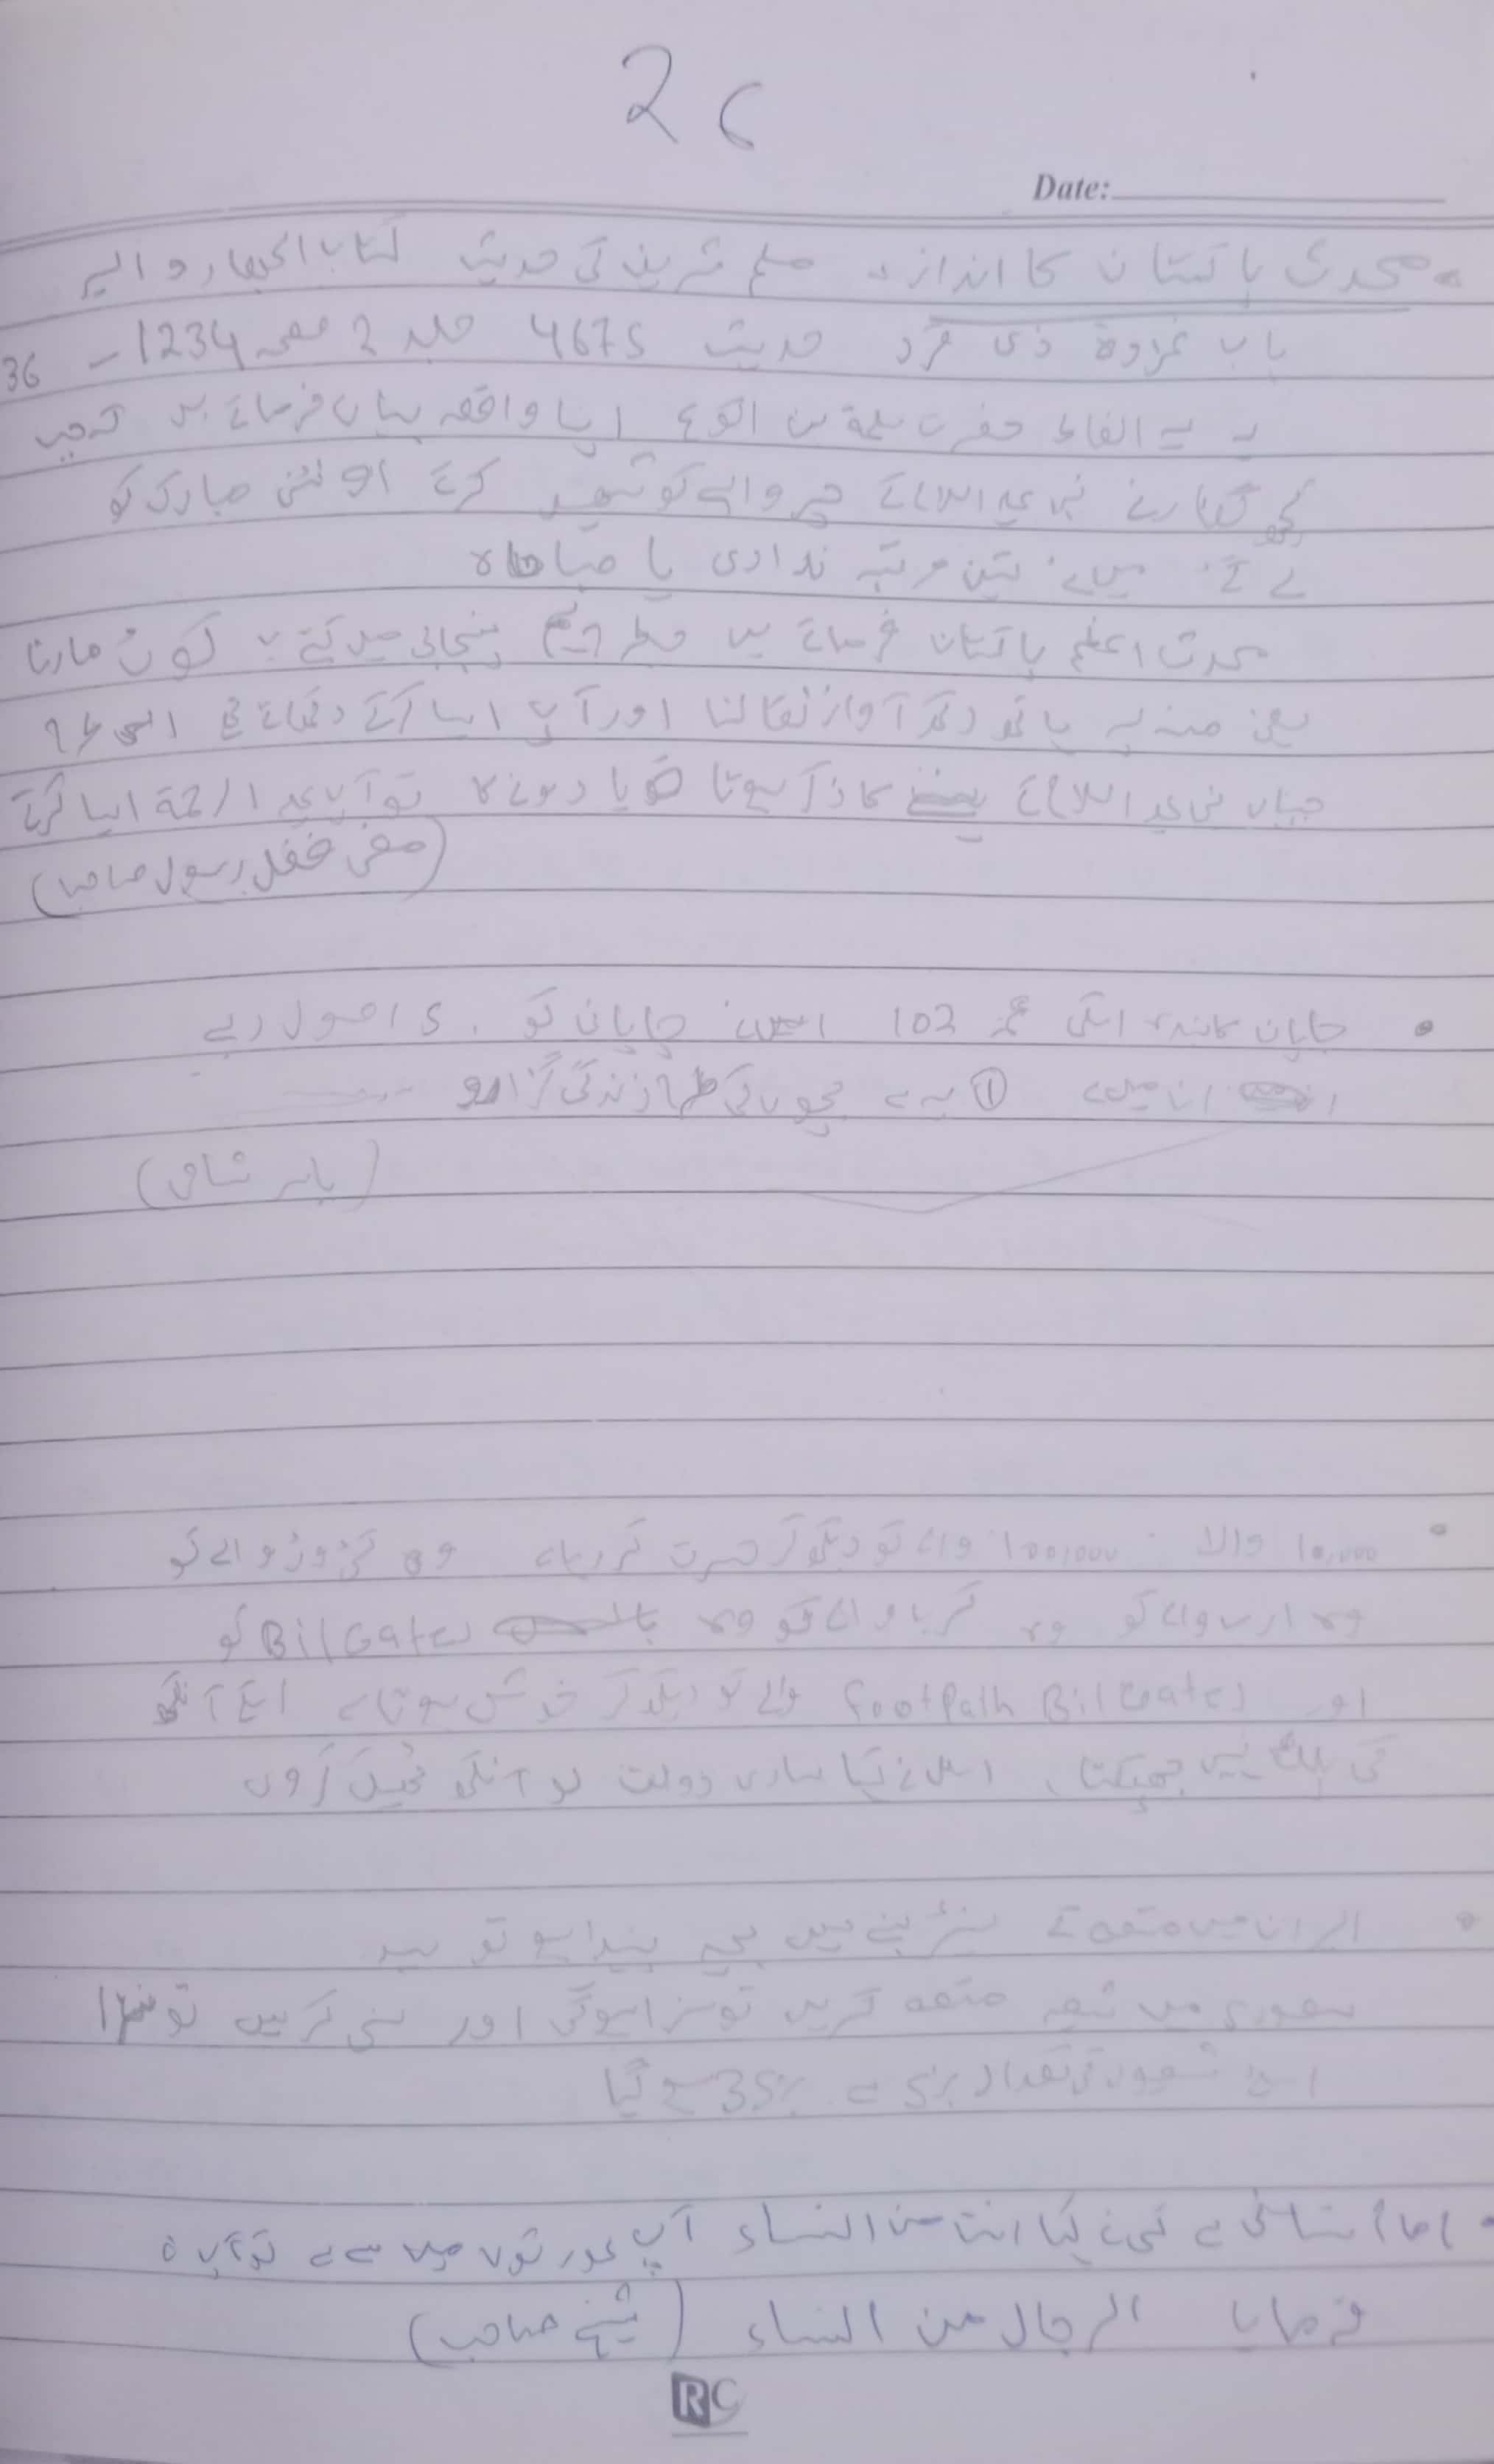 26
Date:
محدث پاکستان کا انداز مسلم شریف کی حدیث کتاب الجهاد و السیر
باب غزوة ذی قرد حدیث 4675 جلد 2 صفحہ 1234 - 36
پہ یہ الفاظ حضرت سلمة بن اکوع اپنا واقعہ بیان فرماتے ہیں کہ جب
کچھ کفار نے نبی علیہ السلام کے چرواہے کو شہید کرکے اونٹنی مبارک کو
لے گئے میں نے تین مرتبہ ندا دی یا صباحاہ
محدث اعظم پاکستان فرماتے ہیں پنجابی میں کہتے ہیں کوک مارنا
یعنی منہ پہ ہاتھ رکھ کر آواز نکالنا اور آپ ایسا کرکے دکھاتے بھی اسی طرح
جہاں نبی علیہ السلام کے کا ذکر ہوتا یا رونے کا تو آپ علیہ الرحمة ایسا کرتے
(مفتی فضل رسول صاحب)
جاپان کا بندہ اسکی عمر 102 اسنے جاپان کو 5 اصول دیے
ان میں سے ① یہ ہے بچوں کی طرح زندگی گزارو
(یاسر شامی)
10,000 والا 100,000 والے کو دیکھ کر حسرت کر رہا ہے وہ کروڑ والے کو
وہ ارب والے کو وہ کھرب والے کو وہ BilGates کو
اور BilGates footPath والے کو دیکھ کر خوش ہوتا ہے اسکے آنکھ
کی پلک نہیں جھپکتا، اس نے کہا ساری دولت لو آنکھ ٹھیک کردو
ایران میں متعہ کے سنٹر بنے ہیں بچے پیدا ہے تو سید
سعودی میں شیعہ متعہ کریں تو سزا ہوگی اور سنی کریں تو سزا
اسلیے شیعوں کی تعداد 5% سے 35% ہے گیا
امام شافعی سے کسی نے کہا انت من النساء آپ عورتوں میں سے ہے تو آپ نے
فرمایا الرجال من النساء (شیخ صاحب)
RC